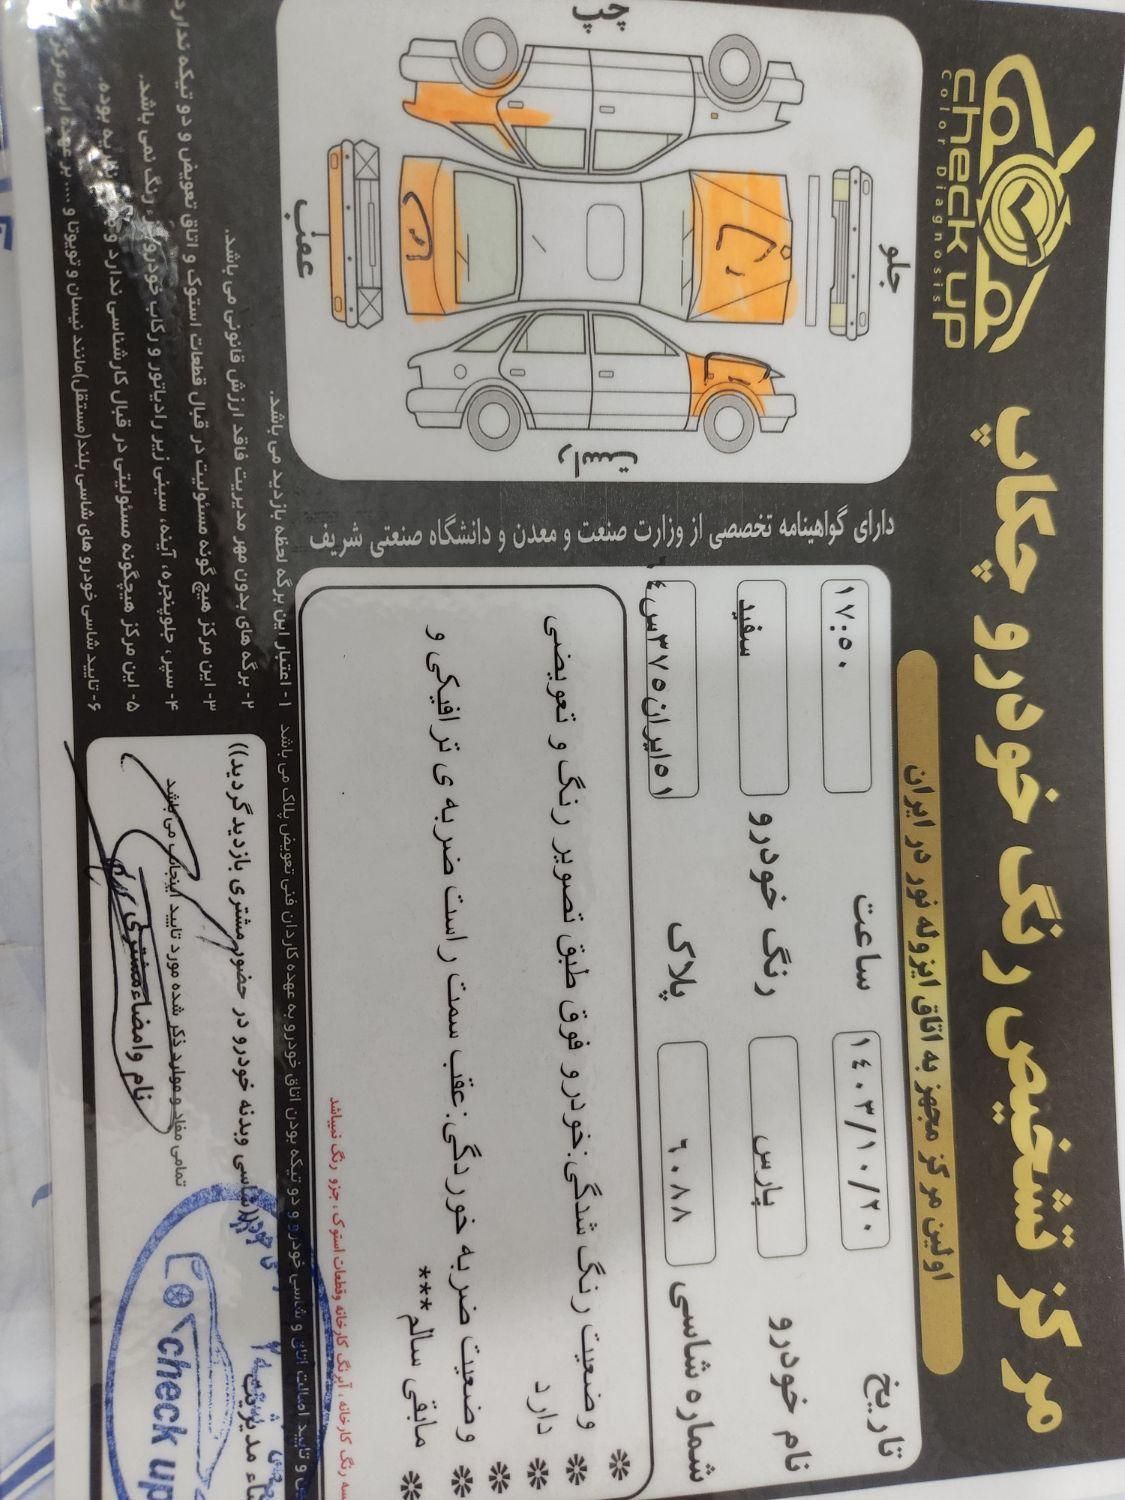 مرکز تشخیص رنگ خودرو چکاپ
اولین مرکز مجهز به اتاق ایزوله نور در ایران
check up
Color Diagnosis
تاریخ ۱۴۰۳/۱۰/۲۰ ساعت ۱۷:۵۰
نام خودرو پارس رنگ خودرو سفید
شماره شاسی ۶۰۸۸ پلاک ۵۱ایران۳۷۵س۴۰
دارای گواهینامه تخصصی از وزارت صنعت و معدن و دانشگاه صنعتی شریف
جلو
چپ
راست
عقب
* وضعیت رنگ شدگی:خودرو فوق طبق تصویر رنگ و تعویضی
* دارد
*
* وضعیت ضربه خوردگی:عقب سمت راست ضربه ی ترافیکی و
* مابقی سالم***
رنگ کارخانه، آبرنگ کارخانه وقطعات استوک، جزو رنگ نمیباشد
و تایید اصالت اتاق و شاسی خودرو و دو تیکه بودن اتاق خودرو به عهده کاردان فنی تعویض پلاک می باشد
۱- اعتبار این برگه لحظه بازدید می باشد.
۲- برگه های بدون مهر مدیریت فاقد ارزش قانونی می باشد.
۳- این مرکز هیچ گونه مسئولیت در قبال قطعات استوک و اتاق تعویض و دو تیکه ندارد
۴- سپر، جلوپنجره، آینه، سینی زیر رادیاتور و رکاب خودرو جزء رنگ نمی باشد.
۵- این مرکز هیچگونه مسئولیتی در قبال کارشناسی ندارد
۶- تایید شاسی خودرو های شاسی بلند(مستقل)مانند نیسان و تویوتا و .... بر عهده این مرکز
شاسی وبدنه خودرو در حضور مشتری بازدید گردید))
تمامی مفاد و موارد ذکر شده مورد تایید اینجانب می باشد
نام وامضاء مشتری
مدیریت
check up